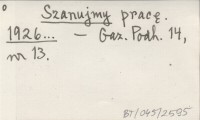 Szanujmy pracę.
1926... — Gaz. Podh. 14,
nr 13.
BJ/045/2535